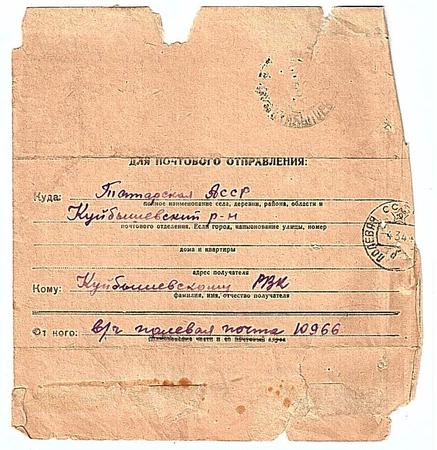 ДЛЯ ПОЧТОВОГО ОТПРАВЛЕНИЯ:
Куда: Татарская АССР
полное наименование села, деревни, района, области и
Куйбышевский р-н
почтового отделения. Если город, наименование улицы, номер
дома и квартиры
адрес получателя
Кому: Куйбышевскому РВК
фамилия, имя, отчество получателя
От кого: в/ч полевая почта 10966
наименование части и ее почтовый адрес
ПОЛЕВАЯ СССР